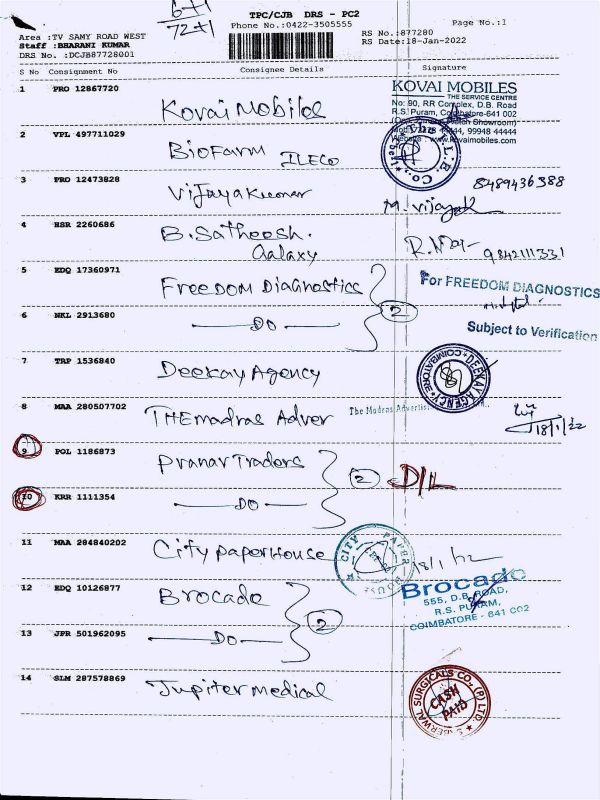 6+1
72+1
TPC/CJB DRS - PC2
Phone No.:0422-3505555
Page No.:1
Area :TV SAMY ROAD WEST
Staff :BHARANI KUMAR
DRS No. :DCJB87728001
RS No.:877280
RS Date:18-Jan-2022
S No Consignment No Consignee Details Signature
1 PRO 12867720 Kovai Mobiles
KOVAI MOBILES
THE SERVICE CENTRE
No: 90, RR Complex, D.B. Road
R.S. Puram, Coimbatore-641 002
44444, 99948 44444
www.kovaimobiles.com
2 VPL 497711029 BioFarm ILECO
3 PRO 12473828 Vijayakumar M. Vijayak 8489436388
4 HSR 2260686 B. Satheesh. 9842111331
Galaxy
5 EDQ 17360971 Freedom Diagnostics
For FREEDOM DIAGNOSTICS
2
6 NKL 2913680 DO
Subject to Verification
7 TRP 1536840 Deekay Agency
DEEKAY AGENCY COIMBATORE
8 MAA 280507702 THE madras Adver The Madras Advertis
18/1/22
9 POL 1186873 Pranav Traders 2 D/L
10 KRR 1111354 DO
11 MAA 284840202 City paper House CITY PAPER HOUSE 18/1/22
12 EDQ 10126877 Brocade
Brocade
555, D.B. ROAD,
R.S. PURAM,
COIMBATORE - 641 002
2
13 JPR 501962095 DO
14 SLM 287578869 Jupiter medical
SABERWAL SURGICALS CO., (P) LTD.
CASH
PAID